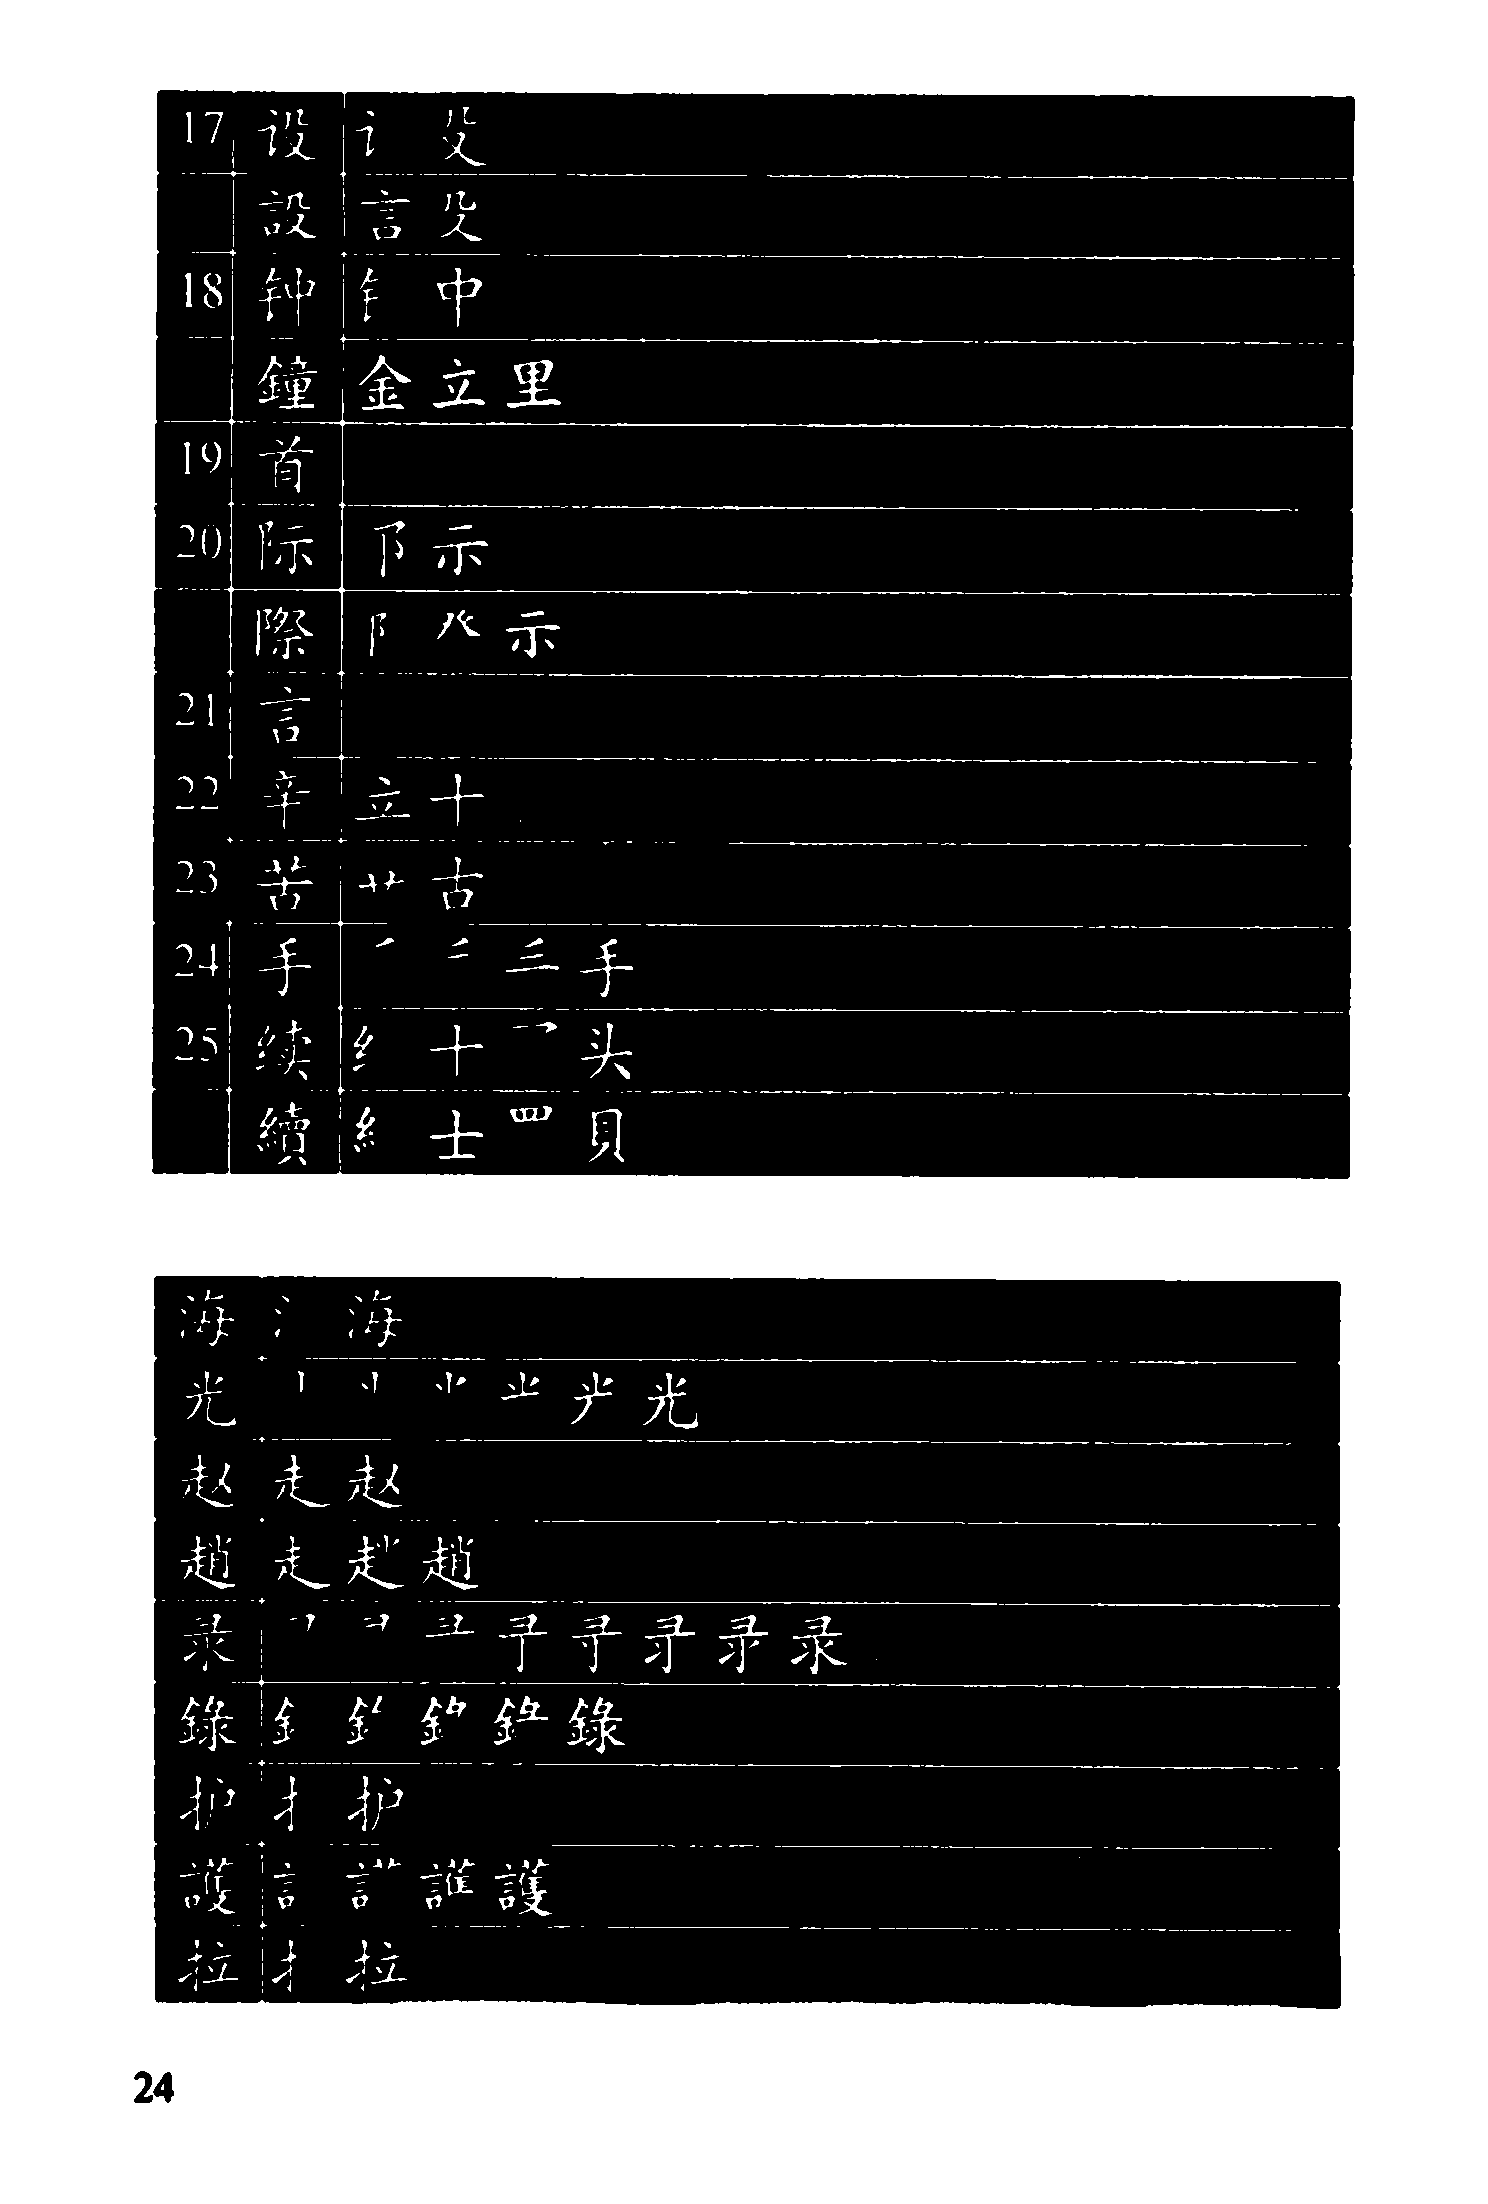 17 设 讠 殳
設 言 殳
18 钟 钅 中
鐘 金 立 里
19 首
20 际 阝 示
際 阝 癶 示
21 言
22 辛 立 十
23 苦 艹 古
24 手 ㇒ 三 手
25 续 纟 十 乛 头
續 糹 士 罒 貝
海 氵 海
光 丨 光
赵 走 赵
趙 走 趙
录 录
錄 釒 錄
护 扌 护
護 訁 護
拉 扌 拉
24